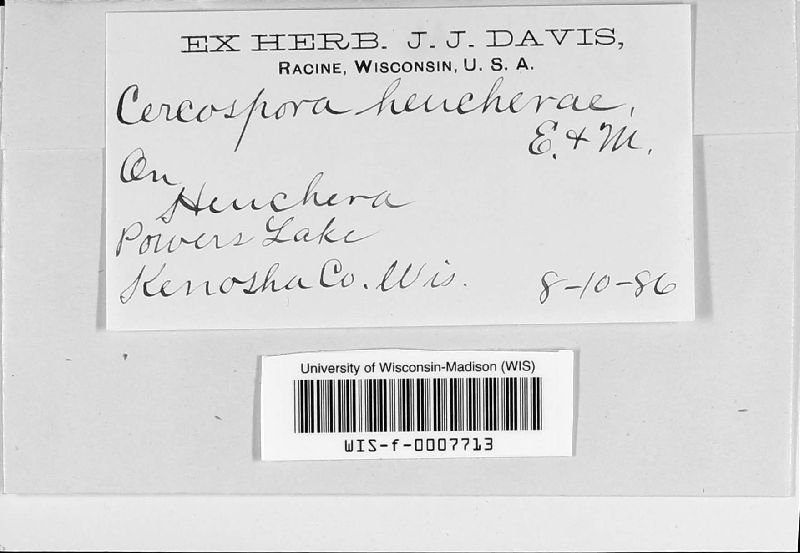 EX HERB. J. J. DAVIS,
RACINE, WISCONSIN, U. S. A.
Cercospora heucherae,
E. & M.
On
Heuchera
Powers Lake
Kenosha Co. Wis. 8-10-86
University of Wisconsin-Madison (WIS)
WIS-f-0007713